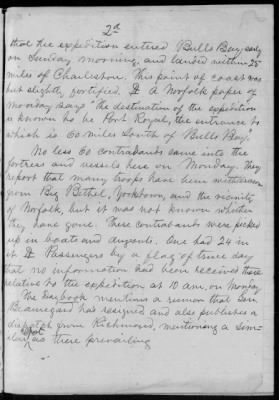 2d
that the expedition entered Bulls Bay early
on Sunday morning, and landed within 25
miles of Charleston. This point of coast was
but slightly fortified. A Norfolk paper of
monday says "the destination of the expedition
is known to be Port Royal, the entrance to
which is 60 miles South of Bulls Bay.
No less 60 contrabands came into the
fortress and vessels here on Monday. they
report that many troops have been withdrawn
from Big Bethel, Yorktown, and the vicinity
of Norfolk, but it was not known whether
they have gone. These contrabands were picked
up in boats and One had 24 in
it. Passengers by a flag of truce day
that no information had been received there
relative to the expedition at 10 am. on Monday
The Daybook mentions a rumor that Gen
Beauregard has resigned and also publishes a
dispatch from Richmond, mentioning a sim-
ilar as there prevailing